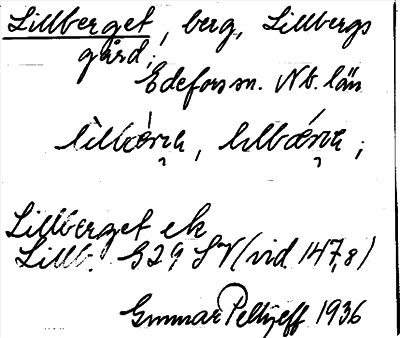 Lillberget, berg, Lillbergs
gård;
Edefors sn. Nb. län
Lillberget ek
Lillb. G29 SV (vid 147,8)
Gunnar Pellijeff 1936